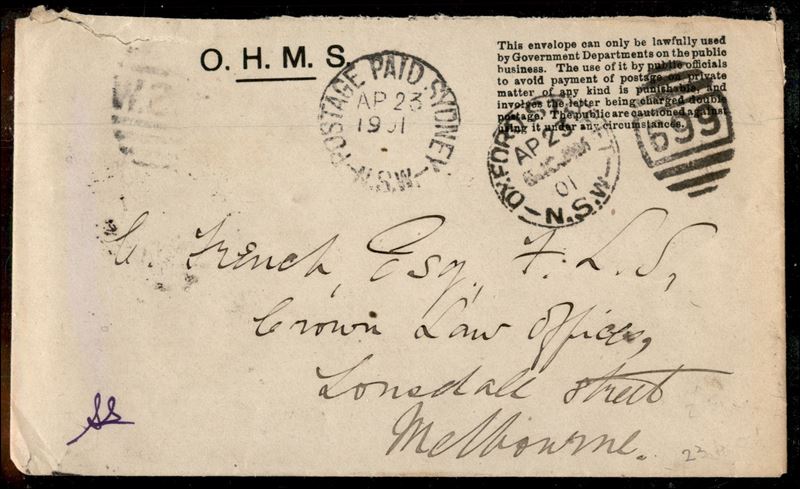 O. H. M. S.
This envelope can only be lawfully used
by Government Departments on the public
business. The use of it by public officials
to avoid payment of postage on private
matter of any kind is punishable, and
involves the letter being charged double
postage. The public are cautioned against
using it under any circumstances.
POSTAGE PAID SYDNEY
AP 23
1901
N.S.W.
OXFORD-ST
AP 23
01
N.S.W
699
C. French, Esq, F. L. S,
Crown Law Offices,
Lonsdale Street
Melbourne.
23